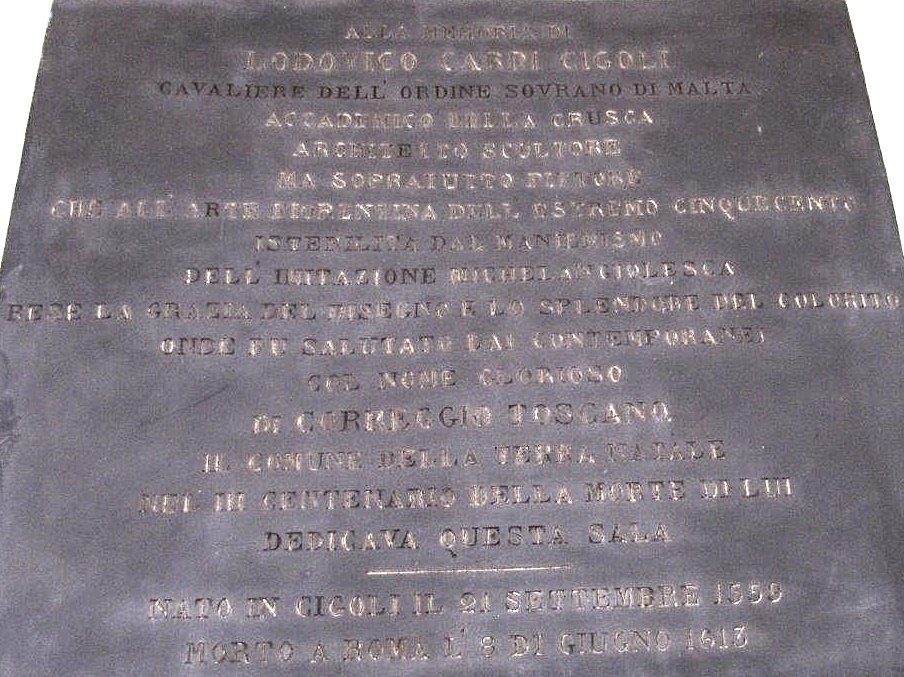 ALLA MEMORIA DI
LODOVICO CARDI CIGOLI
CAVALIERE DELL' ORDINE SOVRANO DI MALTA
ACCADEMICO DELLA CRUSCA
ARCHITETTO SCULTORE
MA SOPRATUTTO PITTORE
CHE ALL' ARTE FIORENTINA DELL' ESTREMO CINQUECENTO
ISTERILITA DAL MANIERISMO
DELL' IMITAZIONE MICHELANGIOLESCA
RESE LA GRAZIA DEL DISEGNO E LO SPLENDORE DEL COLORITO
ONDE FU SALUTATO DAI CONTEMPORANEI
COL NOME GLORIOSO
DI CORREGGIO TOSCANO
IL COMUNE DELLA TERRA NATALE
NEL III CENTENARIO DELLA MORTE DI LUI
DEDICAVA QUESTA SALA
NATO IN CIGOLI IL 21 SETTEMBRE 1559
MORTO A ROMA L' 8 DI GIUGNO 1613